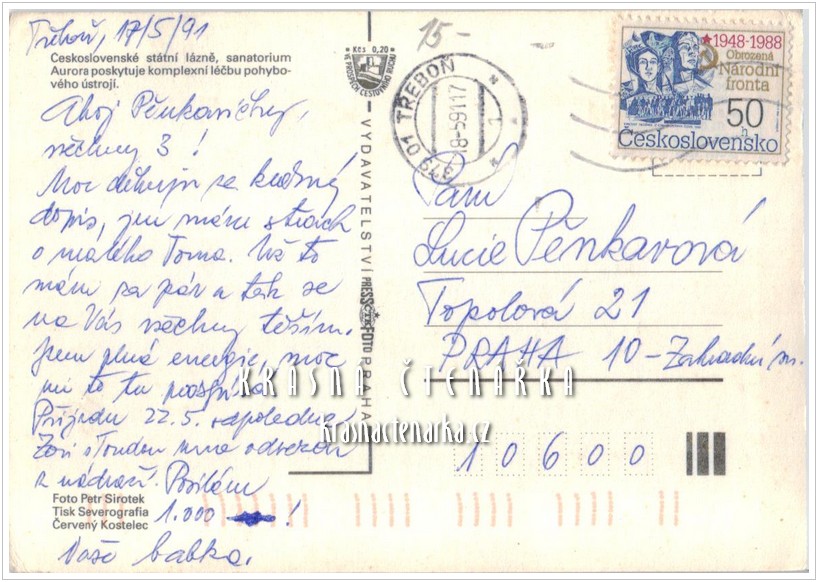 Třeboň, 17/5/91
Československé státní lázně, sanatorium
Aurora poskytuje komplexní léčbu pohybo-
vého ústrojí.
Ahoj Pěnkavičky,
všechny 3!
Moc děkuji za krásný
dopis, jen mám strach
o malého Toma. Už to
mám za pár a tak se
na Vás všechny těším.
Jsem plná energie, moc
mi to tu prospívá.
Přijedu 22.5. odpoledne
z nádraží. Posílám
1.000 !
Vaše babka.
Foto Petr Sirotek
Tisk Severografia
Červený Kostelec
Kčs 0,20
VE PROSPĚCH CESTOVNÍHO RUCHU
VYDAVATELSTVÍ PRESSFOTO PRAHA
15-
379 01 TŘEBOŇ 1
18-5.91 17
1948-1988
Obrozená
Národní
fronta
50 h
Československo
Paní
Lucie Pěnkavová
Topolová 21
PRAHA 10 - Zahradní m.
10600
KRÁSNÁ ČTENÁŘKA
krasnactenarka.cz